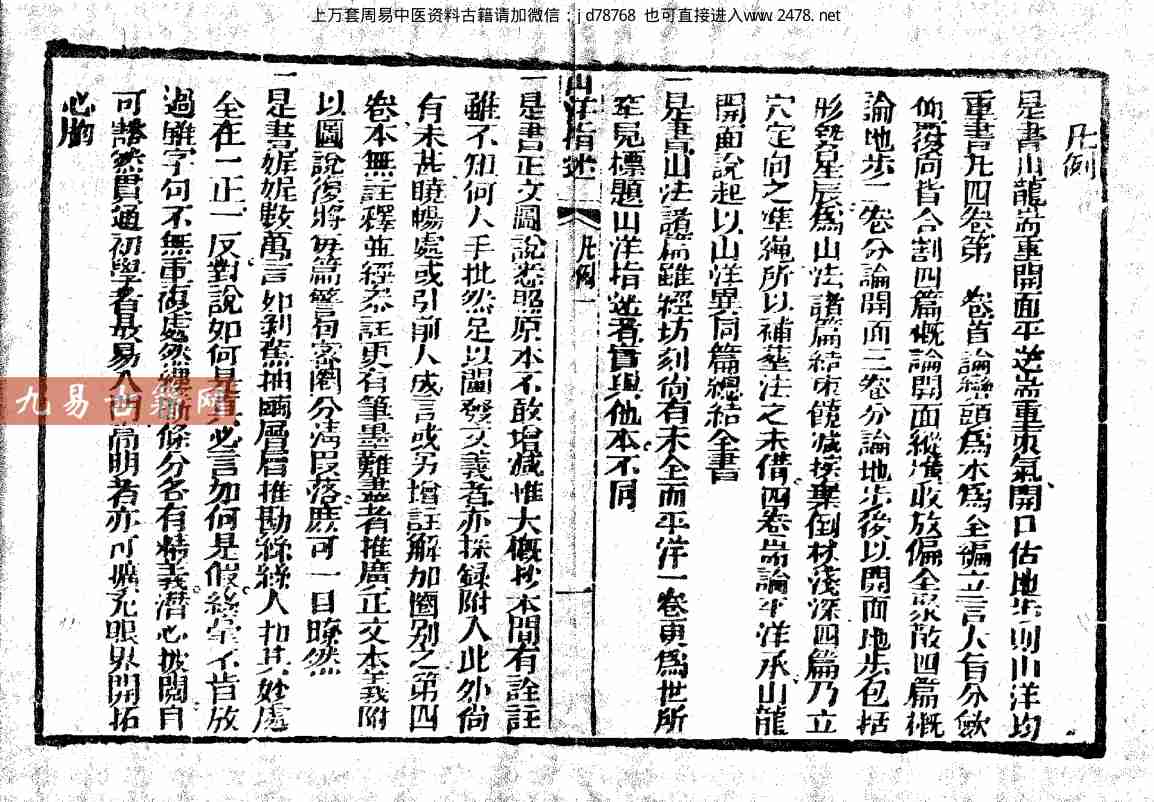 上万套周易中医资料古籍请加微信：jd78768 也可直接进入www.2478.net
凡例
是書山龍耑重開面平洋耑重束氣開口估地步則山洋均
重書凡四卷第一卷首論巒頭為本為全編立言人有分歛
仰覆向背合割四篇概論開面縱橫收放偏全聚散四篇概
論地步二卷分論開面三卷分論地步後以開面地步包括
形勢星辰為山法諸篇結束饒減挨棄倒杖淺深四篇乃立
穴定向之準繩所以補塟法之未備四卷耑論平洋承山龍
開面說起以山洋異同篇總結全書
一是書山法諸篇雖經坊刻尙有未全而平洋一卷更為世所
罕見標題山洋指迷者實與他本不同
山洋指迷 凡例 一
一是書正文圖說悉照原本不敢增減惟大概抄本間有詮註
雖不知何人手批然足以闡發文義者亦採錄附入此外尙
有未甚曉暢處或引前人成言或另增註解加圈別之第四
卷本無註釋並經忝註更有筆墨難盡者推廣正文本義附
以圖說後將每篇警句密圈分淸段落庶可一目瞭然
一是書娓娓數萬言如剝蕉抽繭層層推勘絲絲入扣其妙處
全在一正一反對說如何是眞必言如何是假絲毫不肯放
過雖字句不無重複處然縷晰條分各有精義潛心披閱自
可豁然貫通初學者最易入門高明者亦可擴充眼界開拓
心胸
九易古籍网